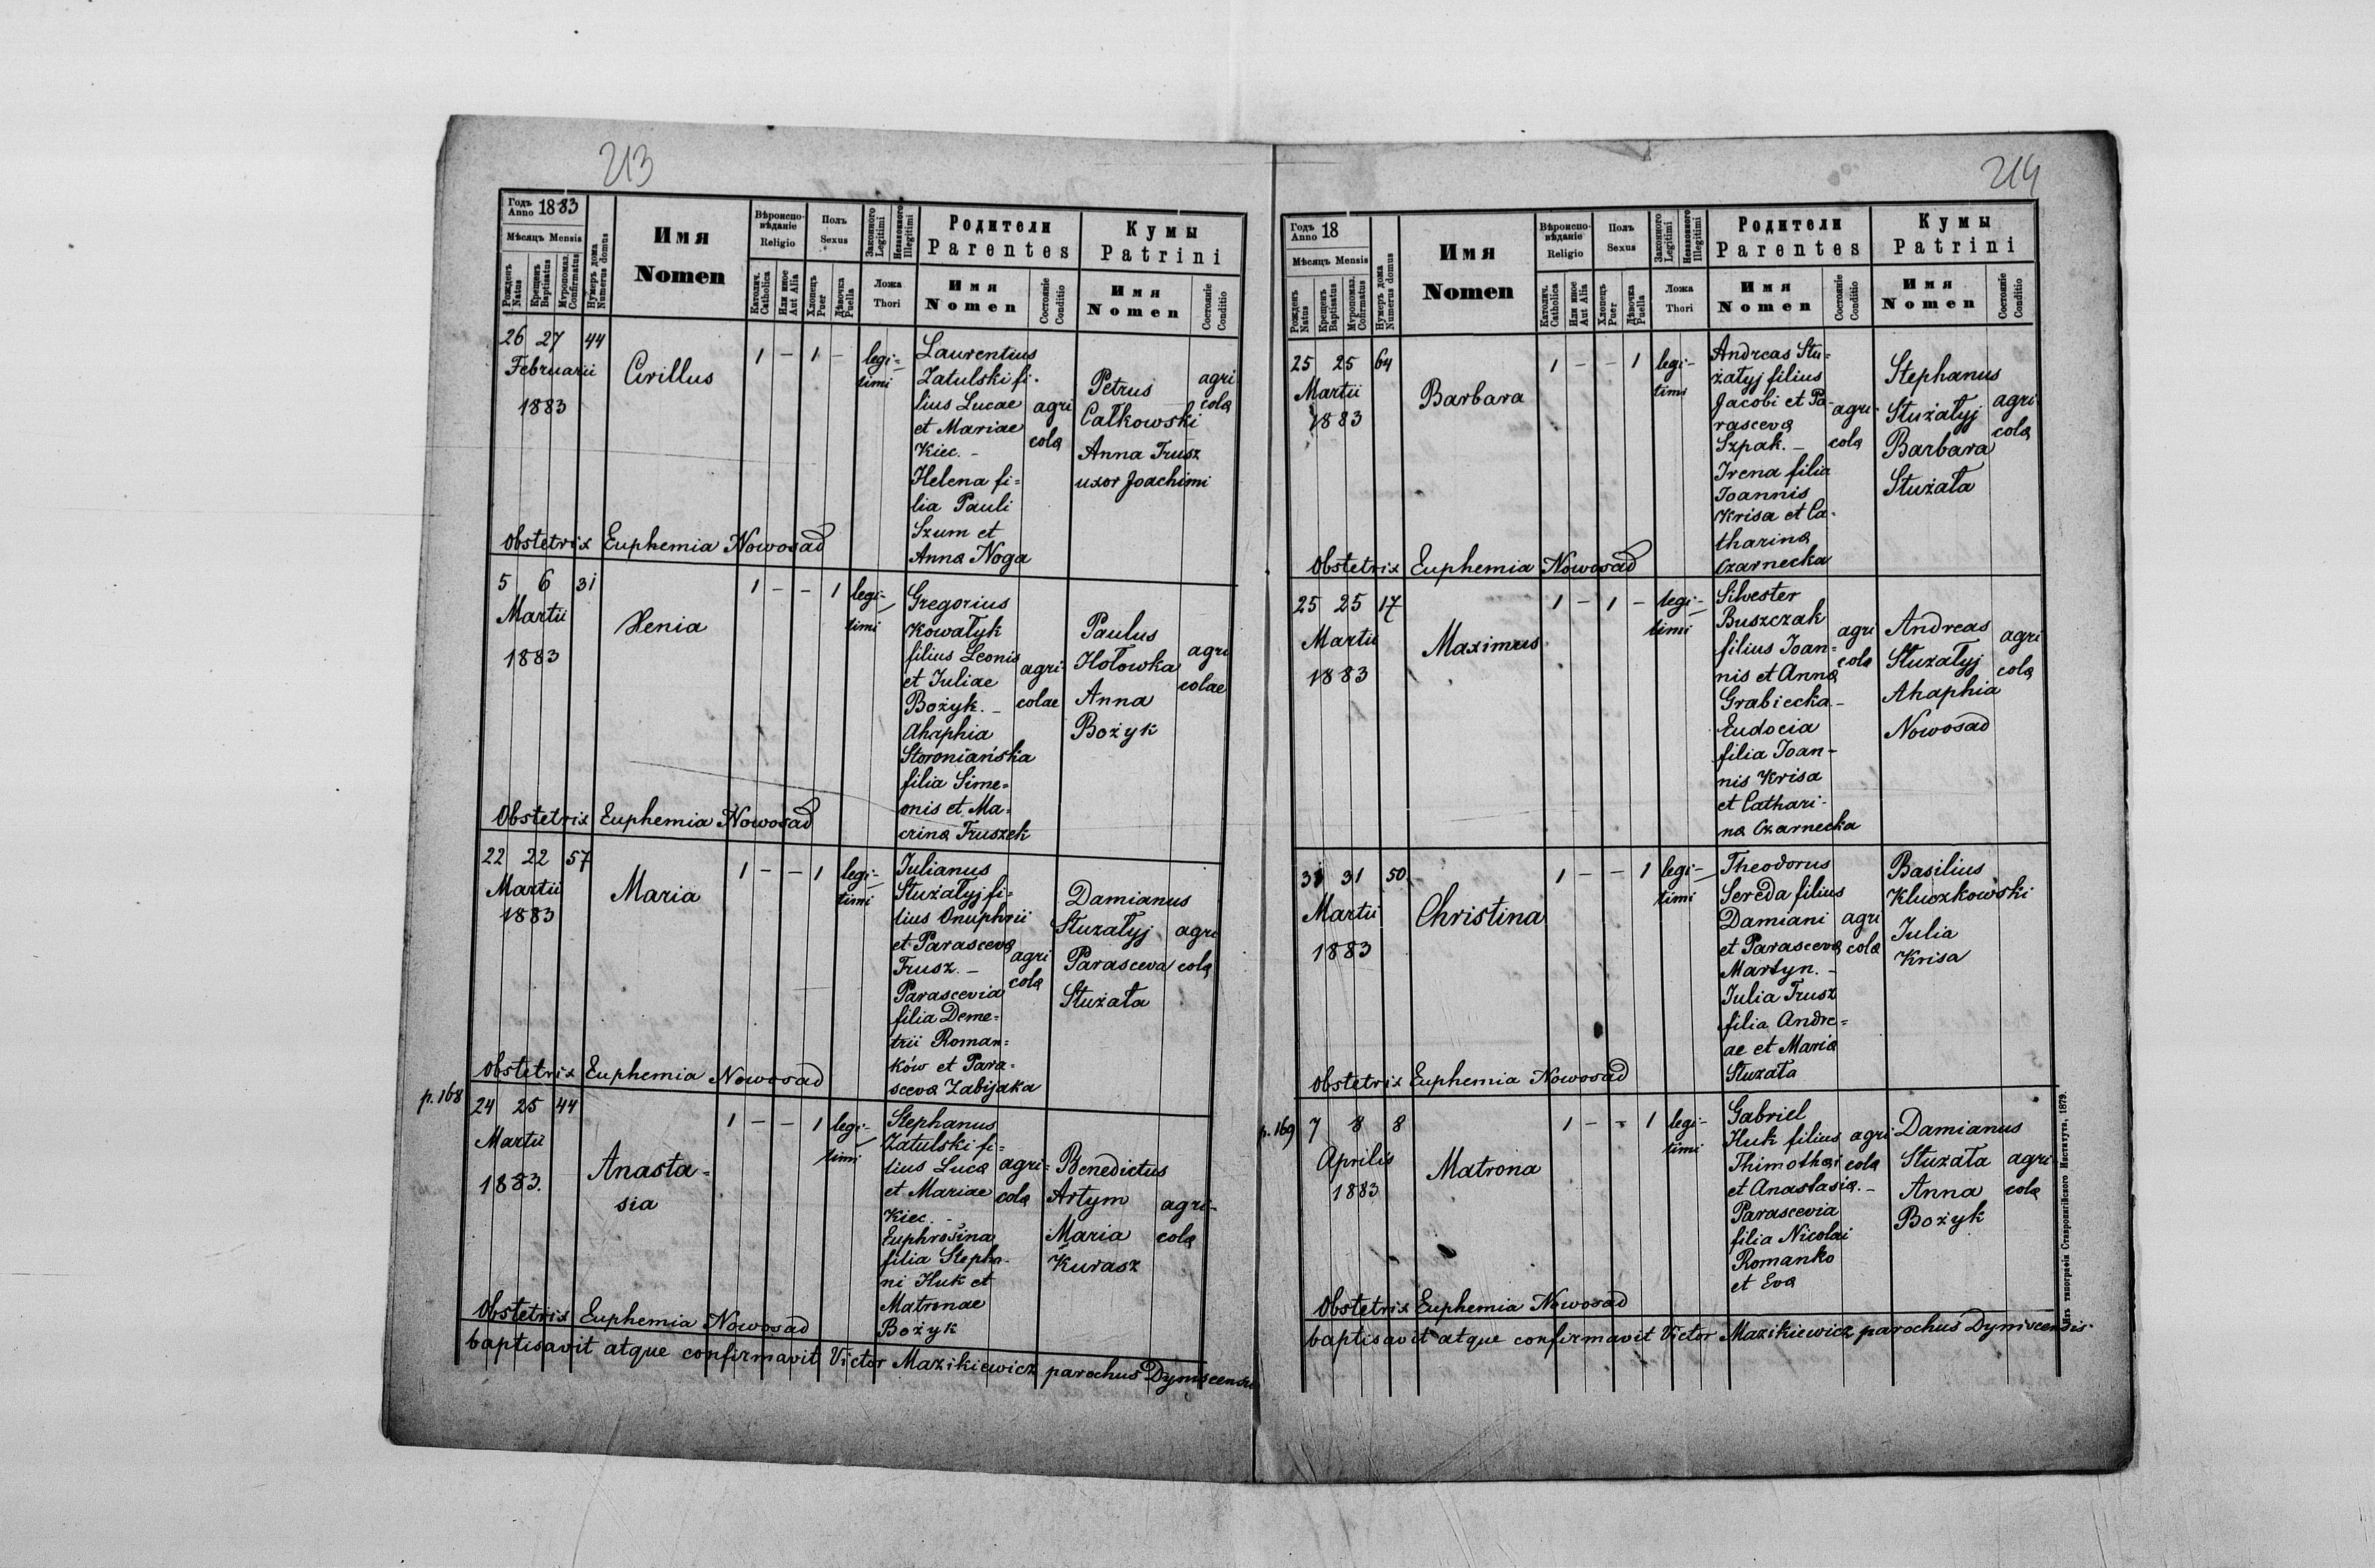 213
Годъ Anno 1883
Мѣсяцъ Mensis
Рожденъ Natus
Крещенъ Baptisatus
Мѵропомаз. Confirmatus
Нумеръ дома Numerus domus
Имя
Nomen
Вѣроиспо-
вѣданіе
Religio
Католич. Catholica
Или иное Aut Alia
Полъ
Sexus
Хлопецъ Puer
Дѣвочка Puella
Законного Legitimi
Незаконного Illegitimi
Ложа
Thori
Родители
Parentes
Имя
Nomen
Состояніе Conditio
Кумы
Patrini
Имя
Nomen
Состояніе Conditio
26 27 44
Februarii
1883
Cirillus
1 - 1 -
legi-
timi
Laurentius
Zatulski fi-
lius Lucae
et Mariae
Kiec. -
Helena fi=
lia Pauli
Szum et
Anna Noga
agri
cola
Petrus
Całkowski
Anna Trusz
uxor Joachimi
agri
cola
Obstetrix Euphemia Nowosad
5 6 31
Martii
1883
Xenia
1 - - 1
legi-
timi
Gregorius
Kowałyk
filius Leonis
et Iuliae
Bożyk. -
Ahaphia
Storoniańska
filia Sime=
onis et Ma-
crina Truszek
agri
colae
Paulus
Hołowka
Anna
Bożyk
agri
colae
Obstetrix Euphemia Nowosad
22 22 57
Martii
1883
Maria
1 - - 1
legi-
timi
Iulianus
Stużałyj fi=
lius Onuphrii
et Parasceva
Trusz. -
Parascevia
filia Deme=
trii Roman=
ków et Para-
sceva Zabijaka
agri
cola
Damianus
Stużałyj
Parasceva
Stużała
agri
cola
Obstetrix Euphemia Nowosad
p. 168
24 25 44
Martii
1883.
Anasta-
sia
1 - - 1
legi-
timi
Stephanus
Zatulski fi=
lius Luca
et Mariae
Kiec. -
Euphrosina
filia Stepha-
ni Huk et
Matronae
Bożyk
agri-
cola
Benedictus
Artym
Maria
Kurasz
agri-
cola
Obstetrix Euphemia Nowosad
baptisavit atque confirmavit Victor Mazikiewicz parochus Dyniscensis
214
Годъ Anno 18
Мѣсяцъ Mensis
Рожденъ Natus
Крещенъ Baptisatus
Мѵропомаз. Cofirmatus
Нумеръ дома Numerus domus
Имя
Nomen
Вѣроиспо-
вѣданіе
Religio
Католич. Catholica
Или иное Aut Alia
Полъ
Sexus
Хлопецъ Puer
Дѣвочка Puella
Законного Legitimi
Незаконного Illegitimi
Ложа
Thori
Родители
Parentes
Имя
Nomen
Состояніе Conditio
Кумы
Patrini
Имя
Nomen
Состояніе Conditio
25 25 64
Martii
1883
Barbara
1 - - 1
legi-
timi
Andreas Stu=
żałyj filius
Jacobi et Pa-
rasceva
Szpak. -
Irena filia
Ioannis
Krisa et Ca-
tharina
Czarnecka
agri-
cola
Stephanus
Stużałyj
Barbara
Stużała
agri
cola
Obstetrix Euphemia Nowosad
25 25 17
Martii
1883
Maximus
1 - 1 -
legi-
timi
Silvester
Buszczak
filius Ioan=
nis et Anna
Grabiecka -
Eudocia
filia Ioan-
nis Krisa
et Cathari-
na Czarnecka
agri
cola
Andreas
Stużałyj
Ahaphia
Nowosad
agri
cola
31 31 50
Martii
1883
Christina
1 - - 1
legi-
timi
Theodorus
Sereda filius
Damiani
et Parasceva
Martyn. -
Iulia Trusz
filia Andre=
ae et Maria
Stużała
agri
cola
Basilius
Kluczkowski
Iulia
Krisa
Obstetrix Euphemia Nowosad
p. 169
7 8 8
Aprilis
1883
Matrona
1 - - 1
legi-
timi
Gabriel
Huk filius
Thimothei
et Anastasia. -
Parascevia
filia Nicolai
Romanko
et Eva
agri
cola
Damianus
Stużała
Anna
Bożyk
agri
cola
Obstetrix Euphemia Nowosad
baptisavit atque confirmavit Victor Mazikiewicz parochus Dyniscensis.
Изъ типографіи Ставропигійского Института, 1879.